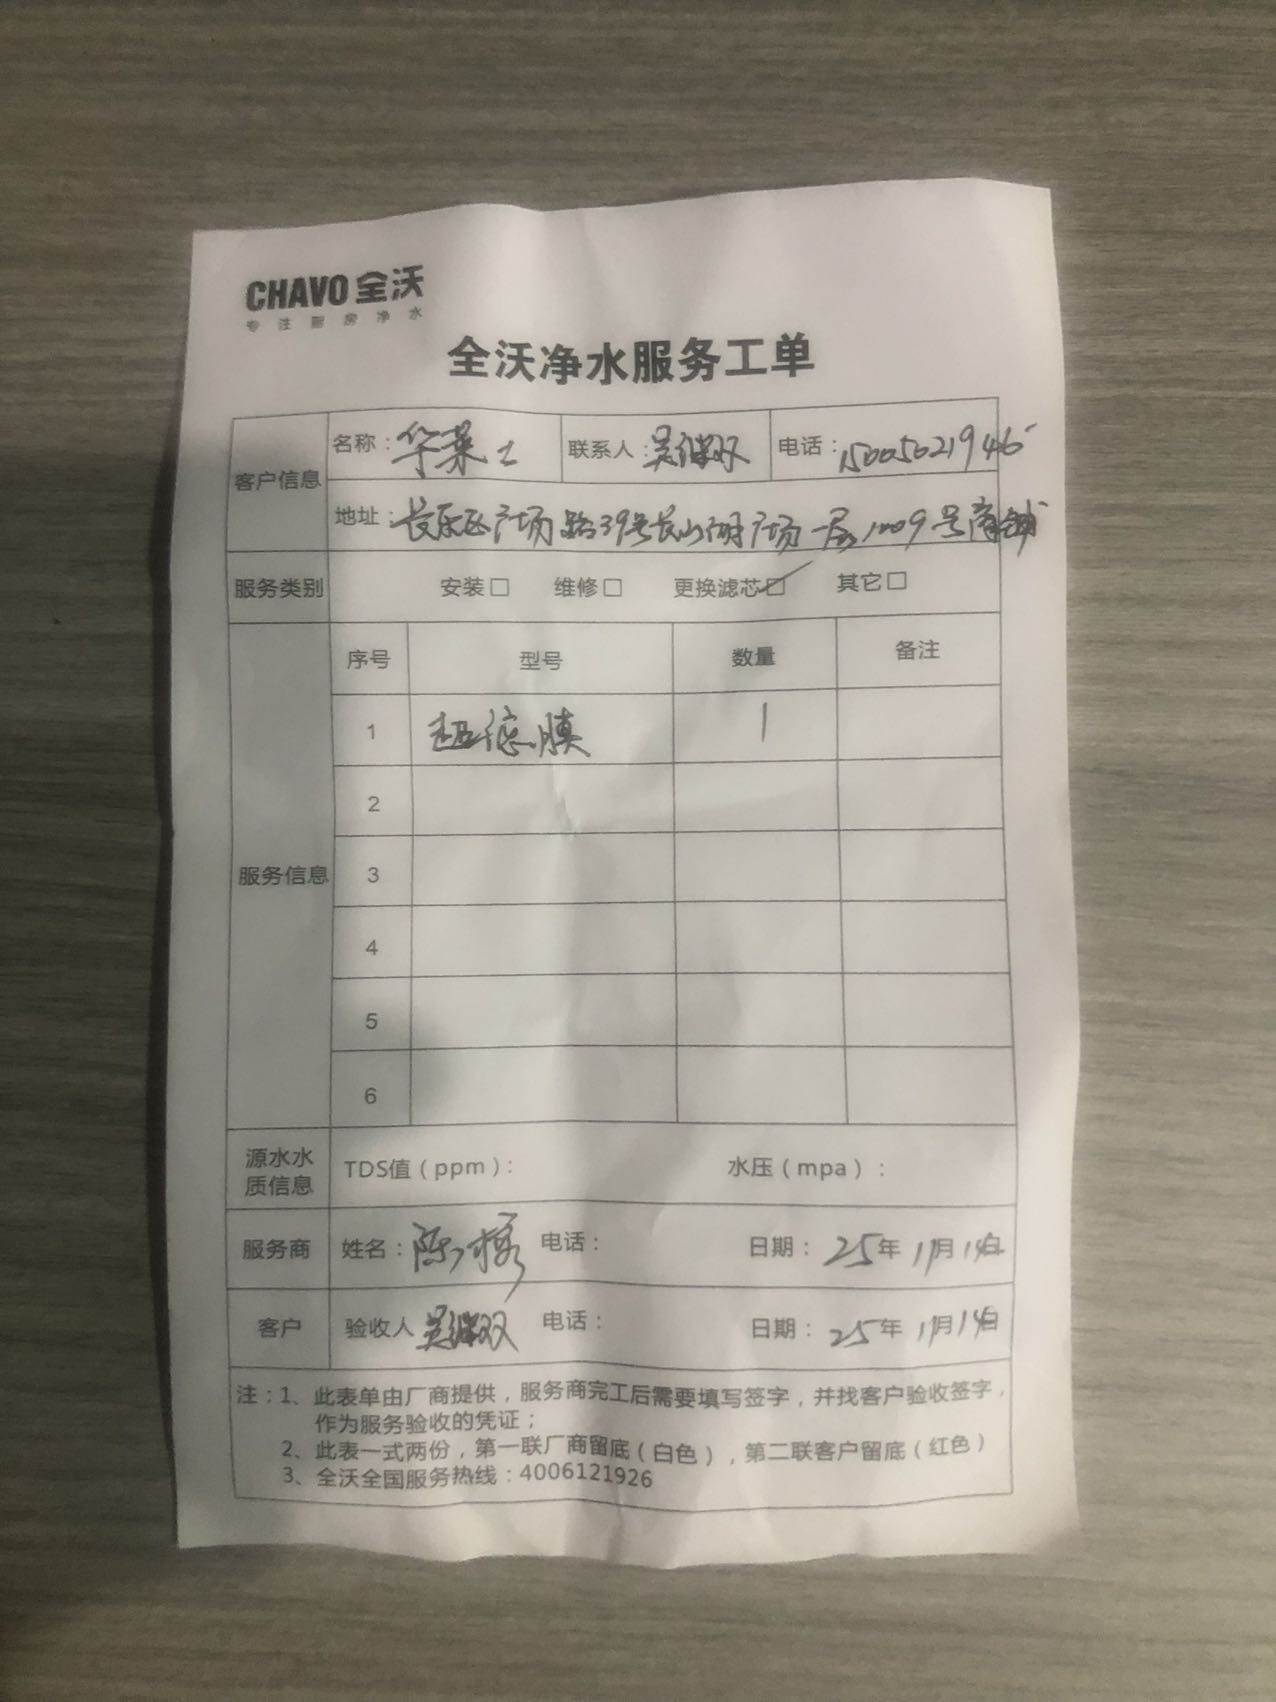 CHAVO 全沃
专注厨房净水
全沃净水服务工单
客户信息 名称：华莱士 联系人：吴继双 电话：15005021946
地址：长乐区广场路39号长山湖广场一层1009号商铺
服务类别 安装□ 维修□ 更换滤芯☑ 其它□
服务信息 序号 型号 数量 备注
1 超滤膜 1
2
3
4
5
6
源水水质信息 TDS值（ppm）： 水压（mpa）：
服务商 姓名：陈 电话： 日期：25年11月14日
客户 验收人 吴继双 电话： 日期：25年11月14日
注：1、此表单由厂商提供，服务商完工后需要填写签字，并找客户验收签字，
作为服务验收的凭证；
2、此表一式两份，第一联厂商留底（白色），第二联客户留底（红色）
3、全沃全国服务热线：4006121926